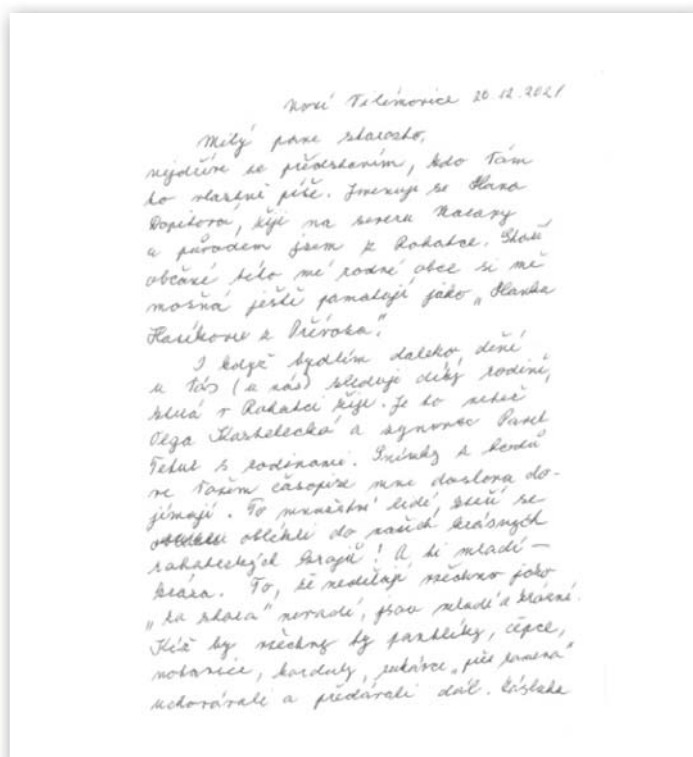 Nové Vilémovice 20.12.2021
Milý pane starosto,
nejdříve se představím, kdo Vám
to vlastně píše. Jmenuji se Hana
Dopitová, žiji na severu Moravy
a původem jsem z Rohatce. Starší
občané této mé rodné obce si mě
možná ještě pamatují jako „Hanka
Hasíkovic z Přívoza".
I když bydlím daleko, dění
u Vás (u nás) sleduji díky rodině,
která v Rohatci žije. Je to neteř
Olga a synovec Pavel
s rodinami. Snímky z hodů
ve Vašem časopise mne doslova do-
jímají. To množství lidí, kteří se
oblékli do našich krásných
rohateckých krojů! A ti mladí –
krása. To, že nedělají všechno jako
„za stara" nevadí, jsou mladé a krásné.
Kéž by všechny ty pantlíky, čepce,
kordule, rukávce „přes ramena"
uchovávali a předávali dál.